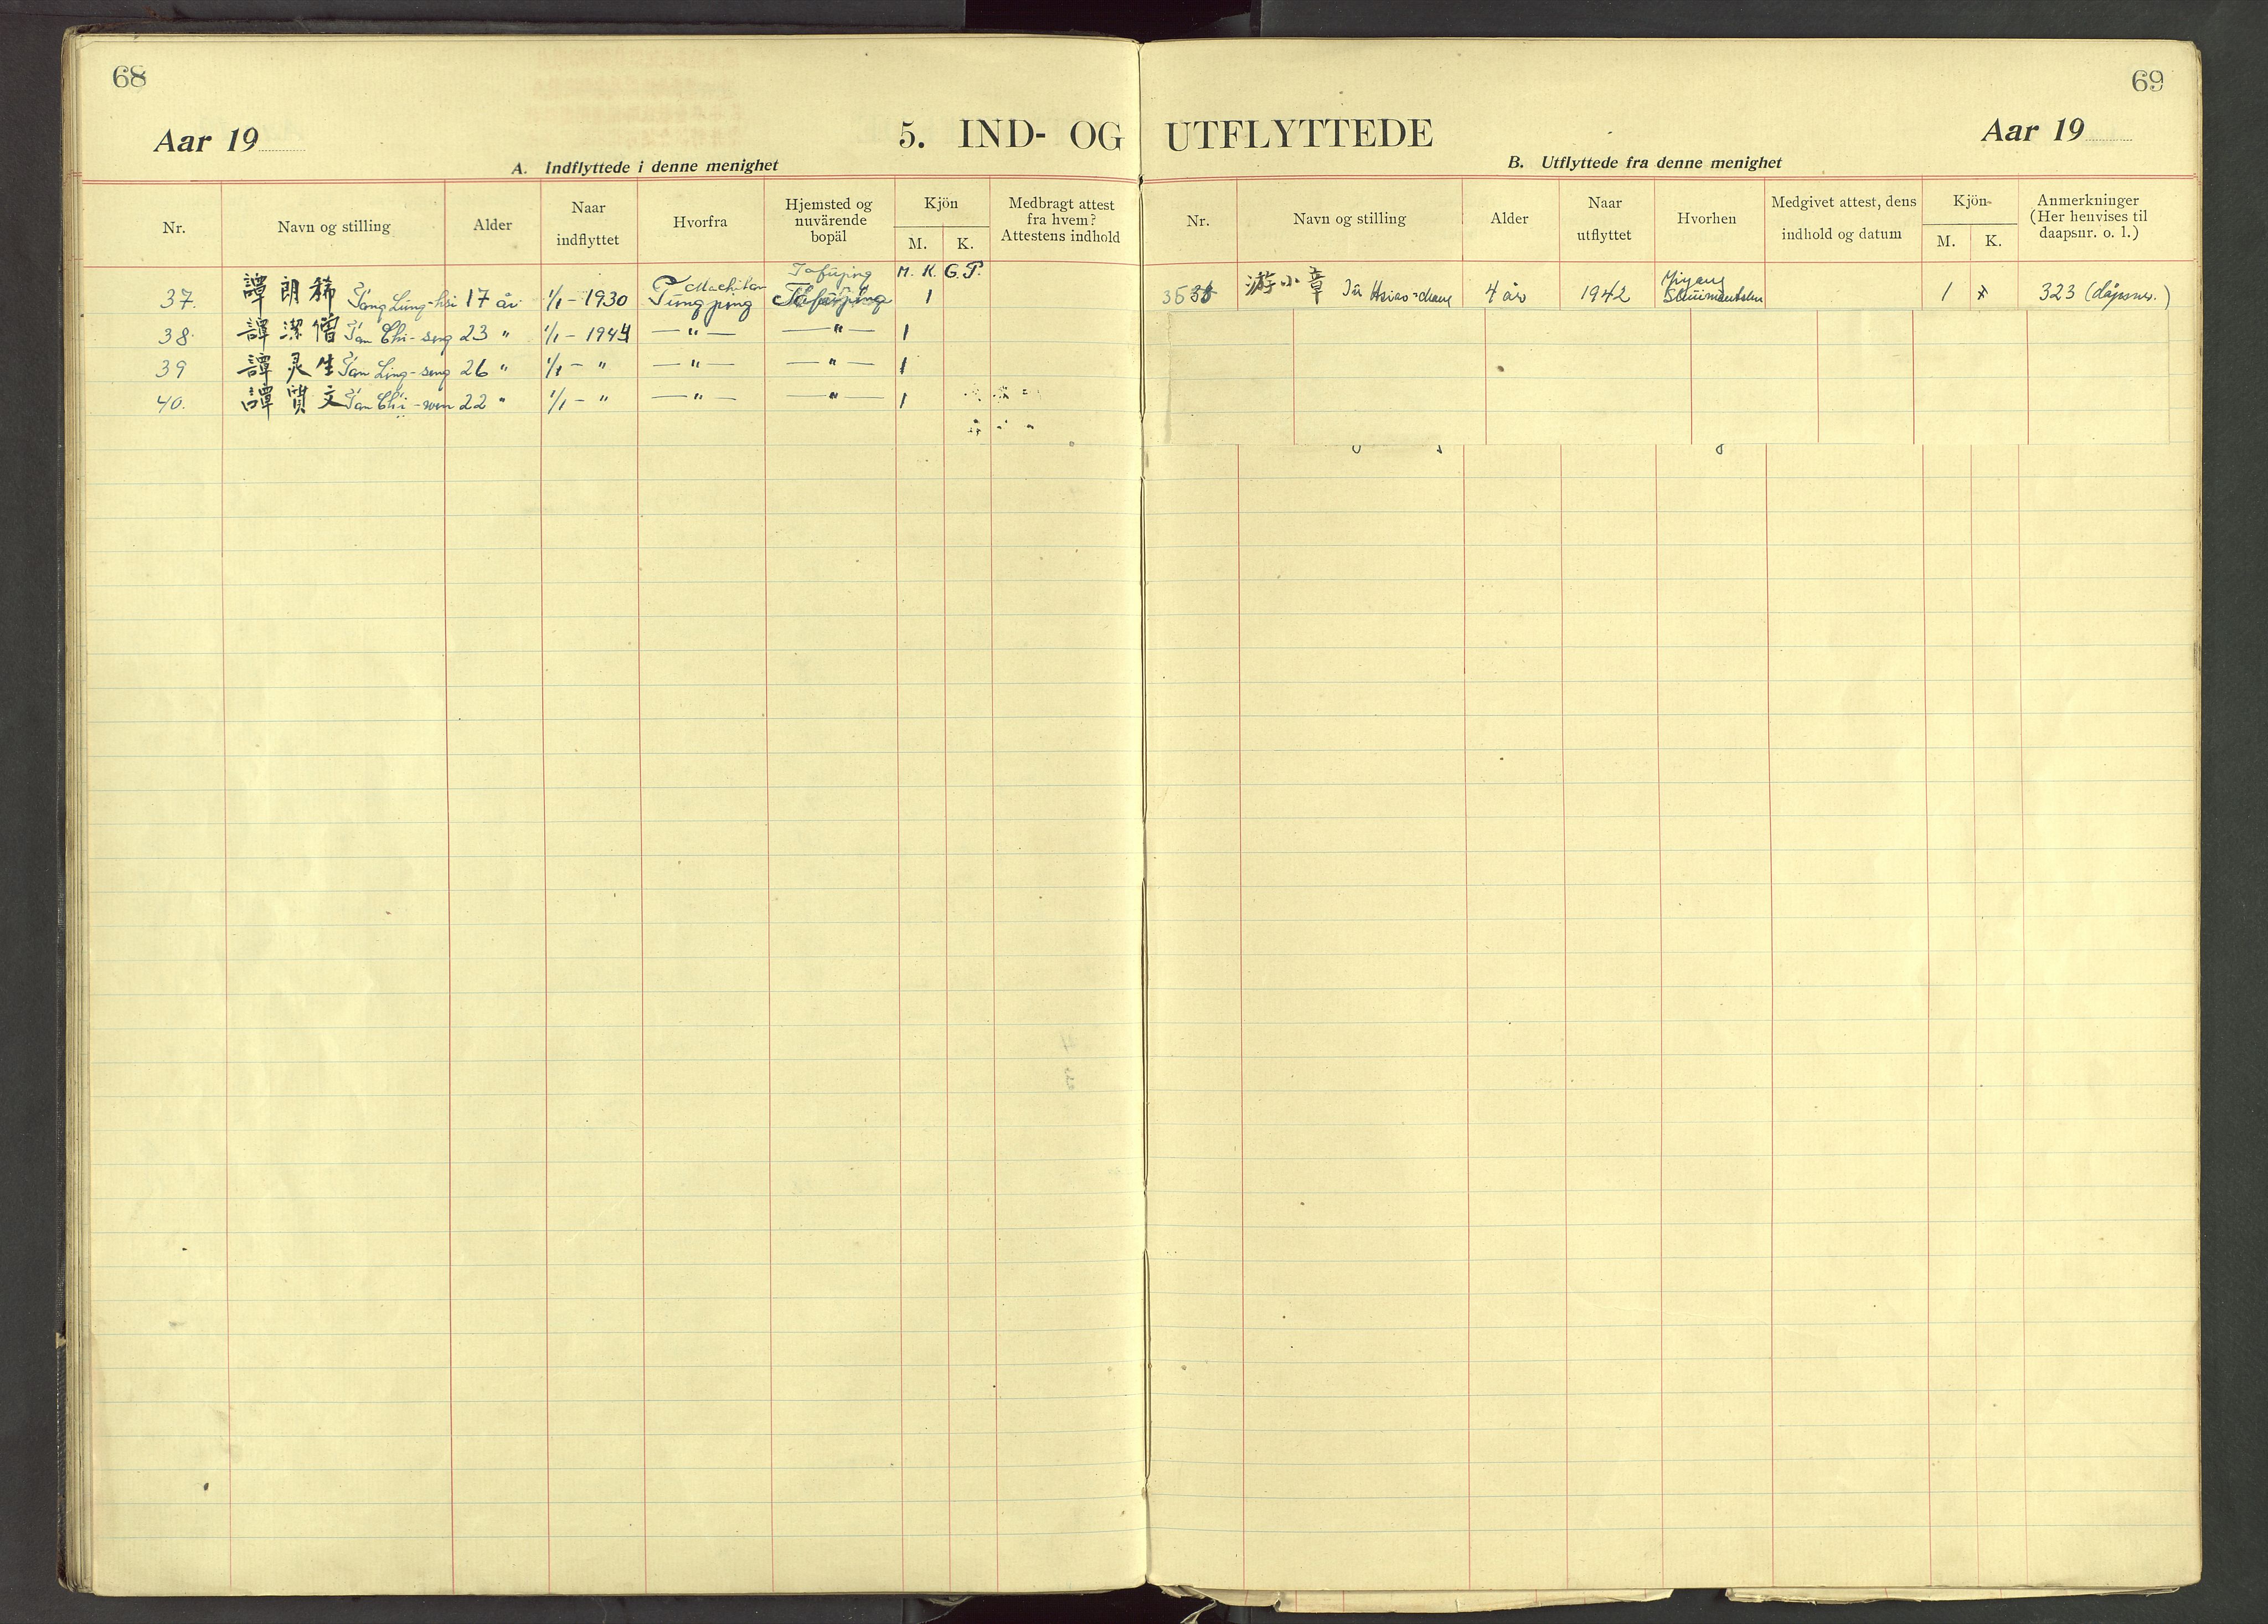 68
Aar 19
5. IND- OG
A. Indflyttede i denne menighet
Nr. Navn og stilling Alder Naar indflyttet Hvorfra Hjemsted og nuvärende bopäl Kjön M. K. Medbragt attest fra hvem? Attestens indhold
Machitan Tafuping M. K. G. P.
37. 譚朗稀 Tang Lung-hsi 17 år 1/1 - 1930 Tungping 1
38. 譚潔僧 Tan Chi-seng 23 " 1/1 - 1944 — " — — " — 1
39 譚灵生 Tan Ling-seng 26 " 1/1 - " — " — — " — 1
40. 譚質文 Tan Chi-wen 22 " 1/1 - " — " — — " — 1
69
UTFLYTTEDE
Aar 19
B. Utflyttede fra denne menighet
Nr. Navn og stilling Alder Naar utflyttet Hvorhen Medgivet attest, dens indhold og datum Kjön M. K. Anmerkninger (Her henvises til daapsnr. o. l.)
游小章 Hsiao-chang 4 år 1942 1 323 (dåpsnr.)